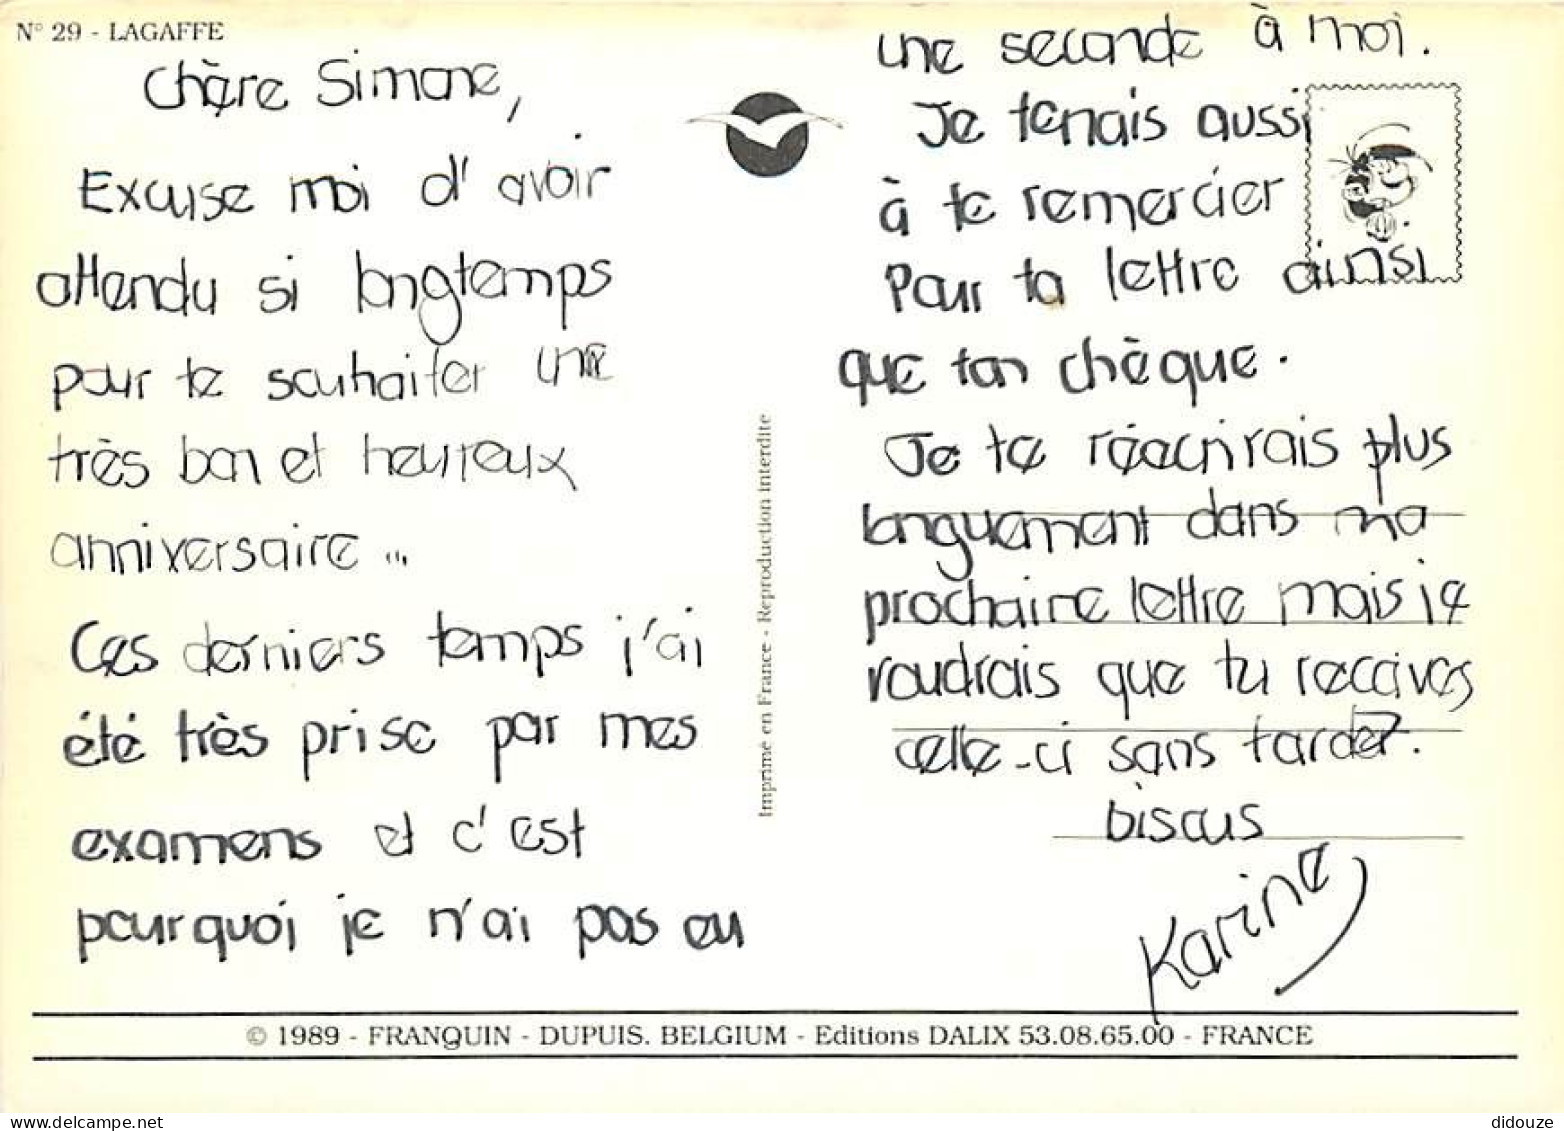 N° 29 - LAGAFFE
Chère Simone,
Excuse moi d'avoir
attendu si longtemps
pour te souhaiter une
très bon et heureux
anniversaire...
Ces derniers temps j'ai
été très prise par mes
examens et c'est
pourquoi je n'ai pas eu
une seconde à moi.
Je tenais aussi
à te remercier
pour ta lettre ainsi
que ton chèque.
Je te réécrirais plus
longuement dans ma
prochaine lettre mais je
voudrais que tu reçoives
celle-ci sans tarder.
bisous
Karine
Imprimé en France - Reproduction interdite
© 1989 - FRANQUIN - DUPUIS. BELGIUM - Editions DALIX 53.08.65.00 - FRANCE
www.delcampe.net
didouze